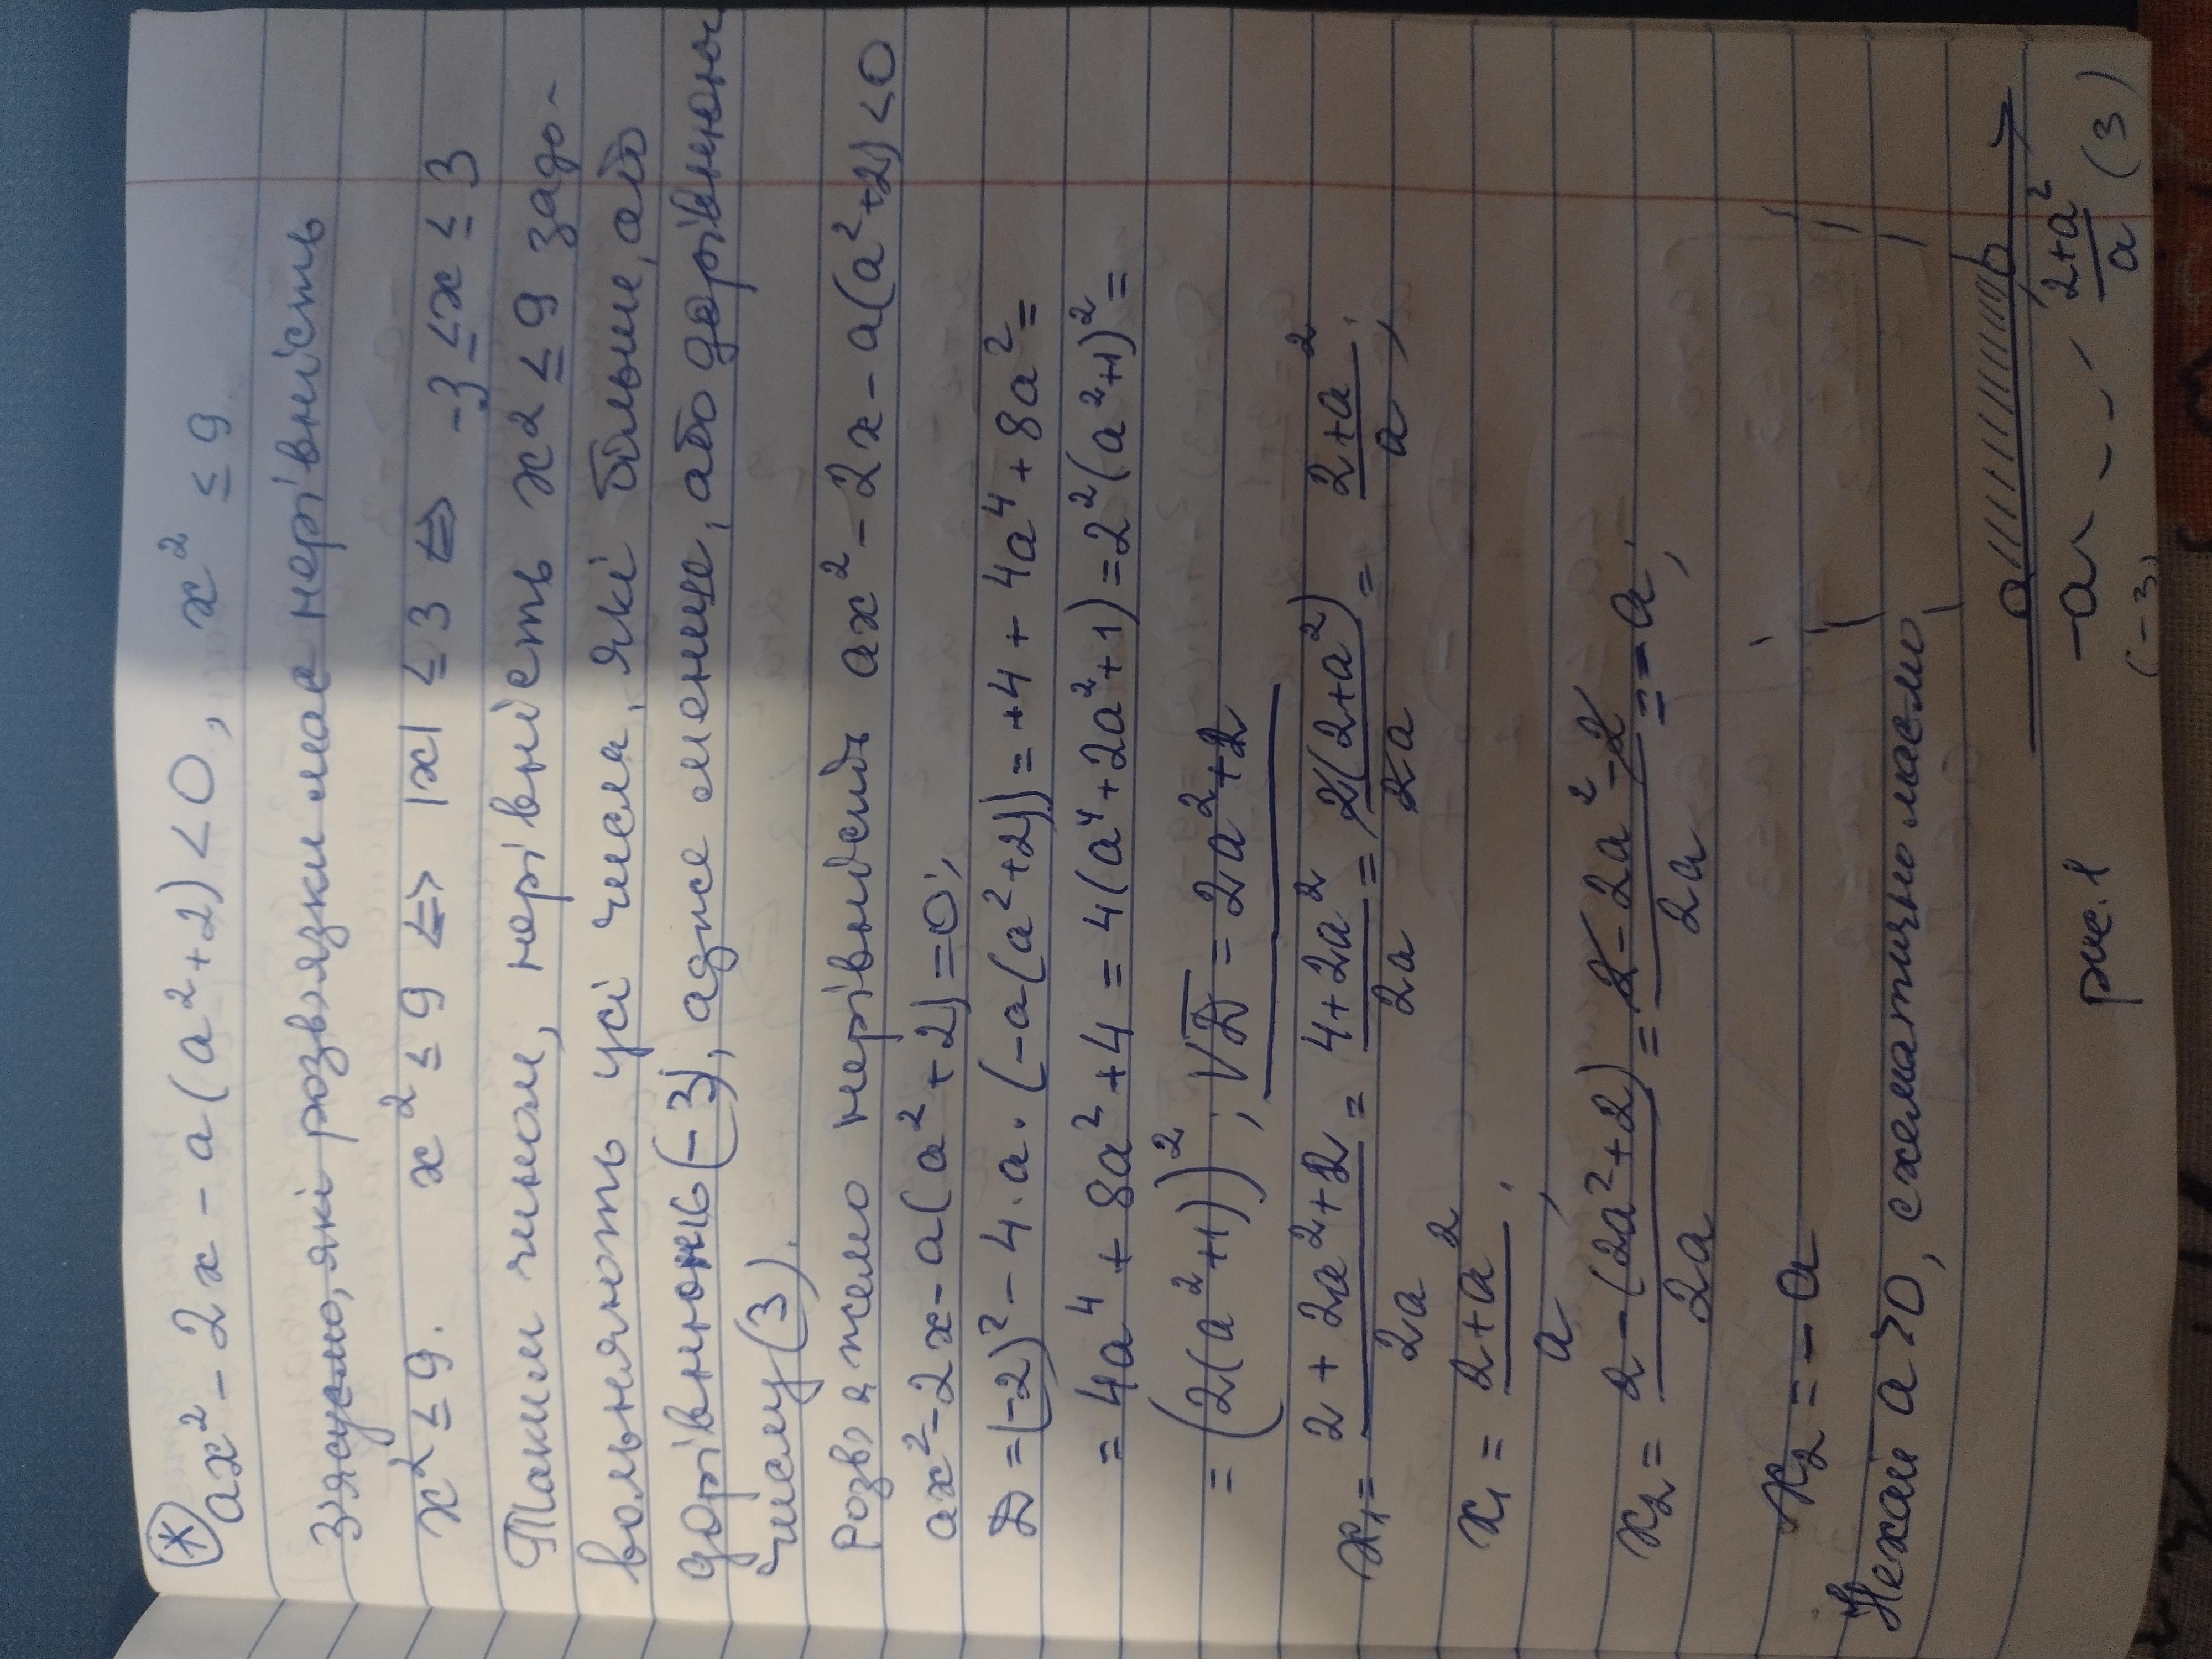 * ax² - 2x - a(a²+2) < 0, x² ≤ 9
З'ясуємо, які розв'язки має нерівність
x² ≤ 9. x² ≤ 9 ⇔ |x| ≤ 3 ⇔ -3 ≤ x ≤ 3
Таким чином, нерівність x2 ≤ 9 задо-
вольняють усі числа, які більше, або
дорівнюють (-3), адже менше, або дорівнюють
числу (3).
Розв'яжемо нерівність ax² - 2x - a(a²+2) < 0
ax² - 2x - a(a²+2) = 0;
D = (-2)² - 4·a·(-a(a²+2)) = +4 + 4a⁴ + 8a² =
= 4a⁴ + 8a² + 4 = 4(a⁴ + 2a² + 1) = 2²(a²+1)² =
= (2(a²+1))²; √D = 2a²+2
x₁ = (2 + 2a² + 2)/2a = (4 + 2a²)/2a = 2(2+a²)/2a = (2+a²)/a;
x₁ = (2+a²)/a;
x₂ = (2 - (2a²+2))/2a = (2 - 2a² - 2)/2a = -a;
x₂ = -a
Нехай a > 0, схематично маємо
-a (2+a²)/a
рис. 1 (-3) (3)